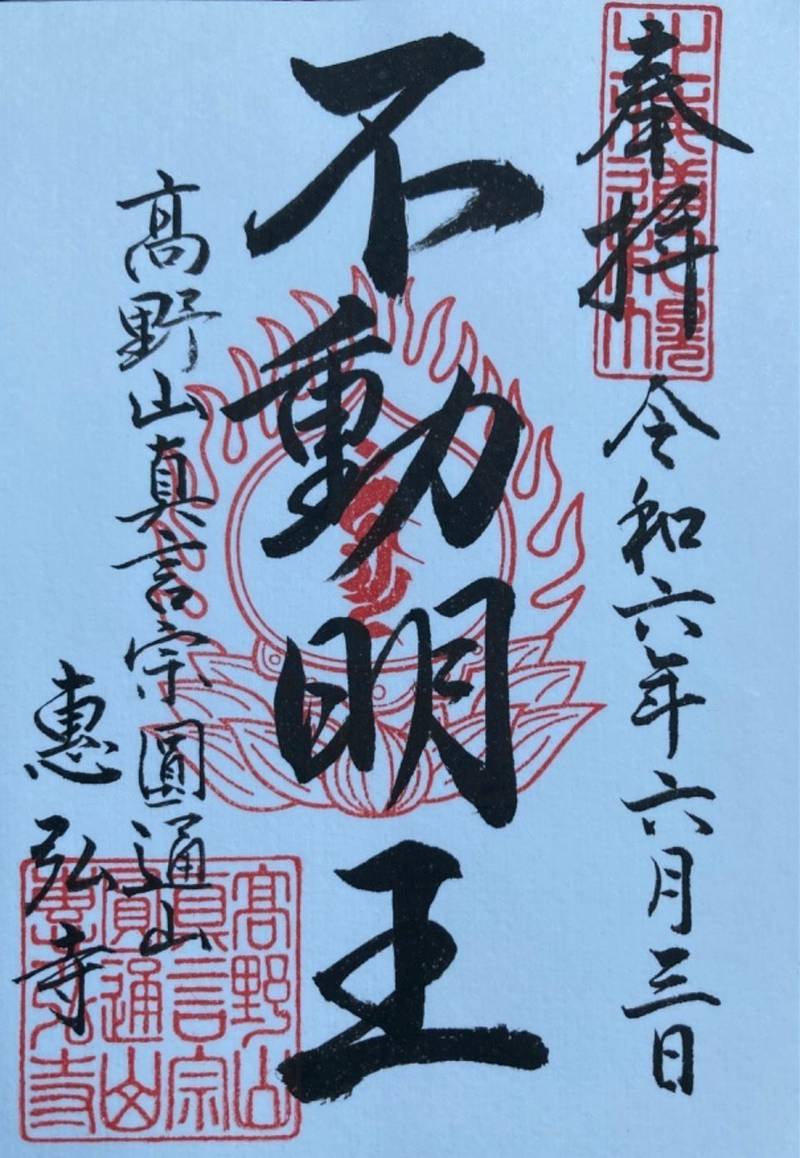 奉拝
令和六年六月三日
不動明王
高野山真言宗圓通山
惠弘寺
高野山
真言宗
圓通山
惠弘寺